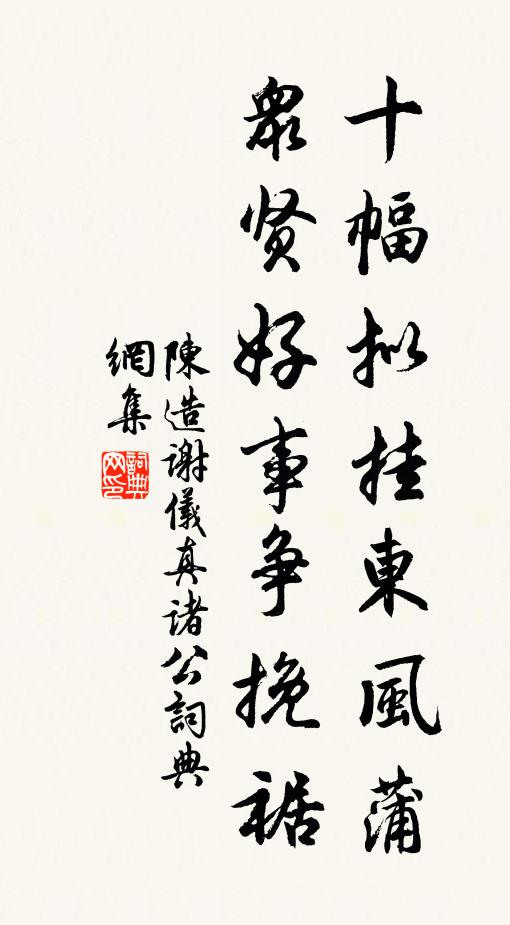 十幅拟挂東風蒲
眾贤好事争挽裾
陳造謝儀真诸公詞典
網集
詞典网印